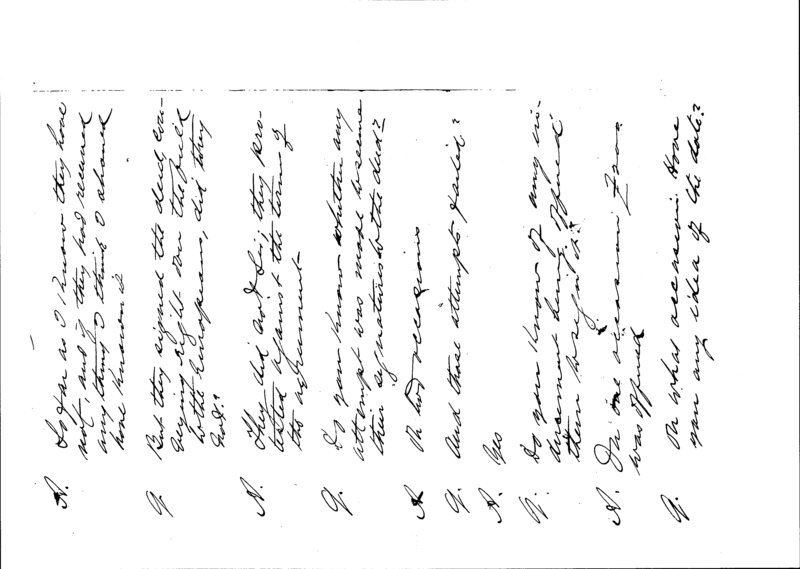 A. So far as I know they have
not, and if they had received
any thing I think I should
have known it
Q. But they signed the deed, con-
veying right over the field
to the Europeans, did they
not?
A. They did not Sir; they pro-
tested against the terms of
the agreement
Q. Do you know whether any
attempt was made to secure
their signatures to the deed?
A On two occasions
Q. And those attempts failed?
A. Yes
Q. Do you know of any in-
ducement being offered
them to sign it?
A. On one occasion
was offered
Q. On what occasion. Have
you any idea of the date?